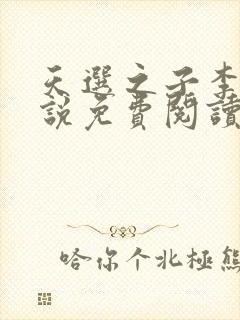 天選之子李
說免費閱讀
哈你个北極熊